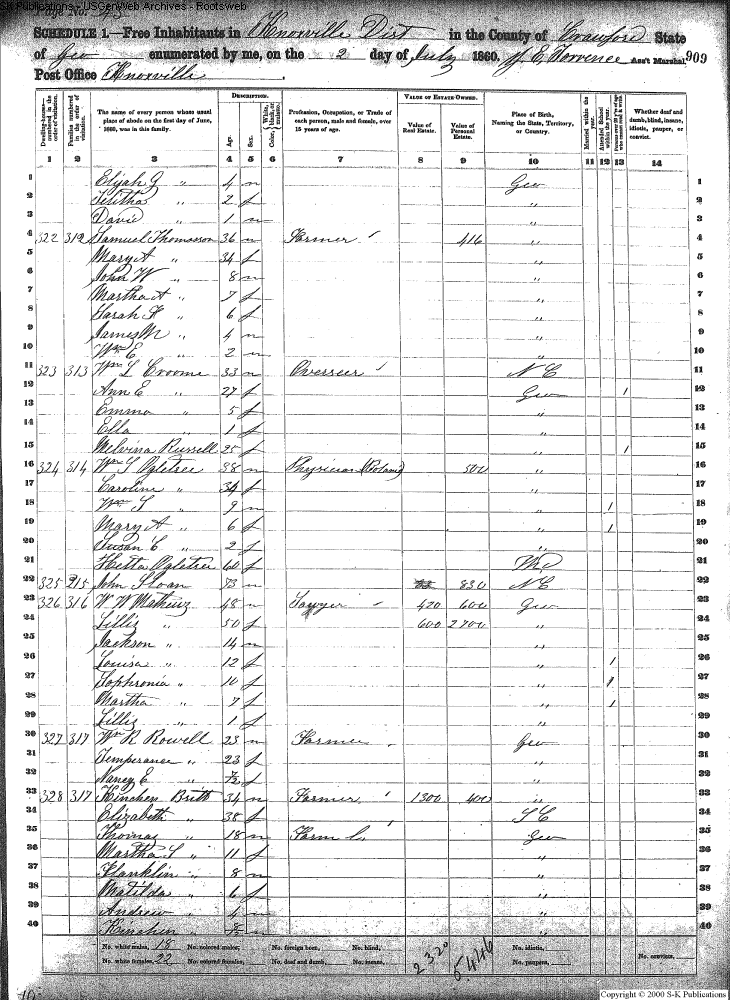 S-K Publications - USGenWeb Archives - Rootsweb
Page No. 43
SCHEDULE 1.—Free Inhabitants in Knoxville Dist in the County of Crawford State
of Geo enumerated by me, on the 2 day of July 1860. Ass't Marshal. 909
Post Office Knoxville
Dwelling-house—numbered in the order of visitation.
Families numbered in the order of visitation.
The name of every person whose usual place of abode on the first day of June, 1860, was in this family.
DESCRIPTION.
Age.
Sex.
Color, {White, black, or mulatto.
Profession, Occupation, or Trade of each person, male and female, over 15 years of age.
VALUE OF ESTATE OWNED.
Value of Real Estate.
Value of Personal Estate.
Place of Birth, Naming the State, Territory, or Country.
Married within the year.
Attended School within the year.
Whether deaf and dumb, blind, insane, idiotic, pauper, or convict.
1 2 3 4 5 6 7 8 9 10 11 12 13 14
1 Elijah J " 4 m Geo 1
2 " 2 f " 2
3 David " 1 m " 3
4 322 312 Samuel Thomasson 36 m Farmer 416 " 4
5 Mary A " 34 f " 5
6 John W " 8 m " 6
7 Martha A " 7 f " 7
8 Sarah F " 6 f " 8
9 James M " 4 m " 9
10 Wm E " 2 m " 10
11 323 313 Wm L Croome 33 m Overseer N C 11
12 Ann E " 27 f Geo 1 12
13 Emma " 5 f " 13
14 Ella " 1 f " 14
15 Melvina Russell 25 f " 1 15
16 324 314 Wm S Ogletree 38 m Physician (Botanic) 500 " 16
17 Caroline " 34 f " 17
18 Wm S " 9 m " 1 18
19 Mary A " 6 f " 1 19
20 Susan C " 2 f " 20
21 Hetta Ogletree 60 f 21
22 325 315 John Sloan 73 m 830 N C 22
23 326 316 W W Mathews 48 m Sawyer 420 600 Geo 23
24 " 50 f 600 2700 " 24
25 Jackson " 14 m " 25
26 Louisa " 12 f " 1 26
27 Sophronia " 10 f " 1 27
28 Martha " 7 f " 1 28
29 " 1 f " 29
30 327 317 Wm R Rowell 23 m Farmer Geo 30
31 Temperance " 23 f " 31
32 Nancy E " f " 32
33 328 317 Kinchen Britt 34 m Farmer 1300 400 " 33
34 Elizabeth " 38 f S C 34
35 Thomas " 18 m Farm L. Geo 35
36 Martha S " 11 f " 36
37 Franklin " 8 m " 37
38 Matilda " 6 f " 38
39 Andrew " 4 m " 39
40 Kinchen " m " 40
No. white males, 18 No. colored males, No. foreign born, No. blind, 2320 5446 No. idiotic, No. convicts,
No. white females, 22 No. colored females, No. deaf and dumb, No. insane, No. paupers,
Copyright © 2000 S-K Publications